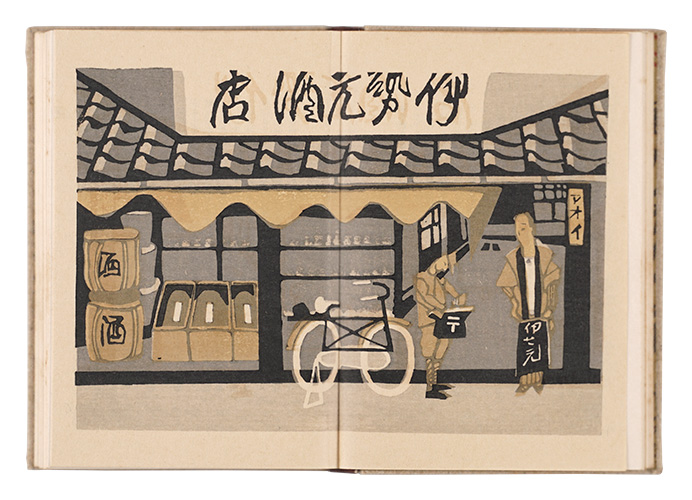 伊勢元酒店
アオイ
酒
酒
〒
伊セ元